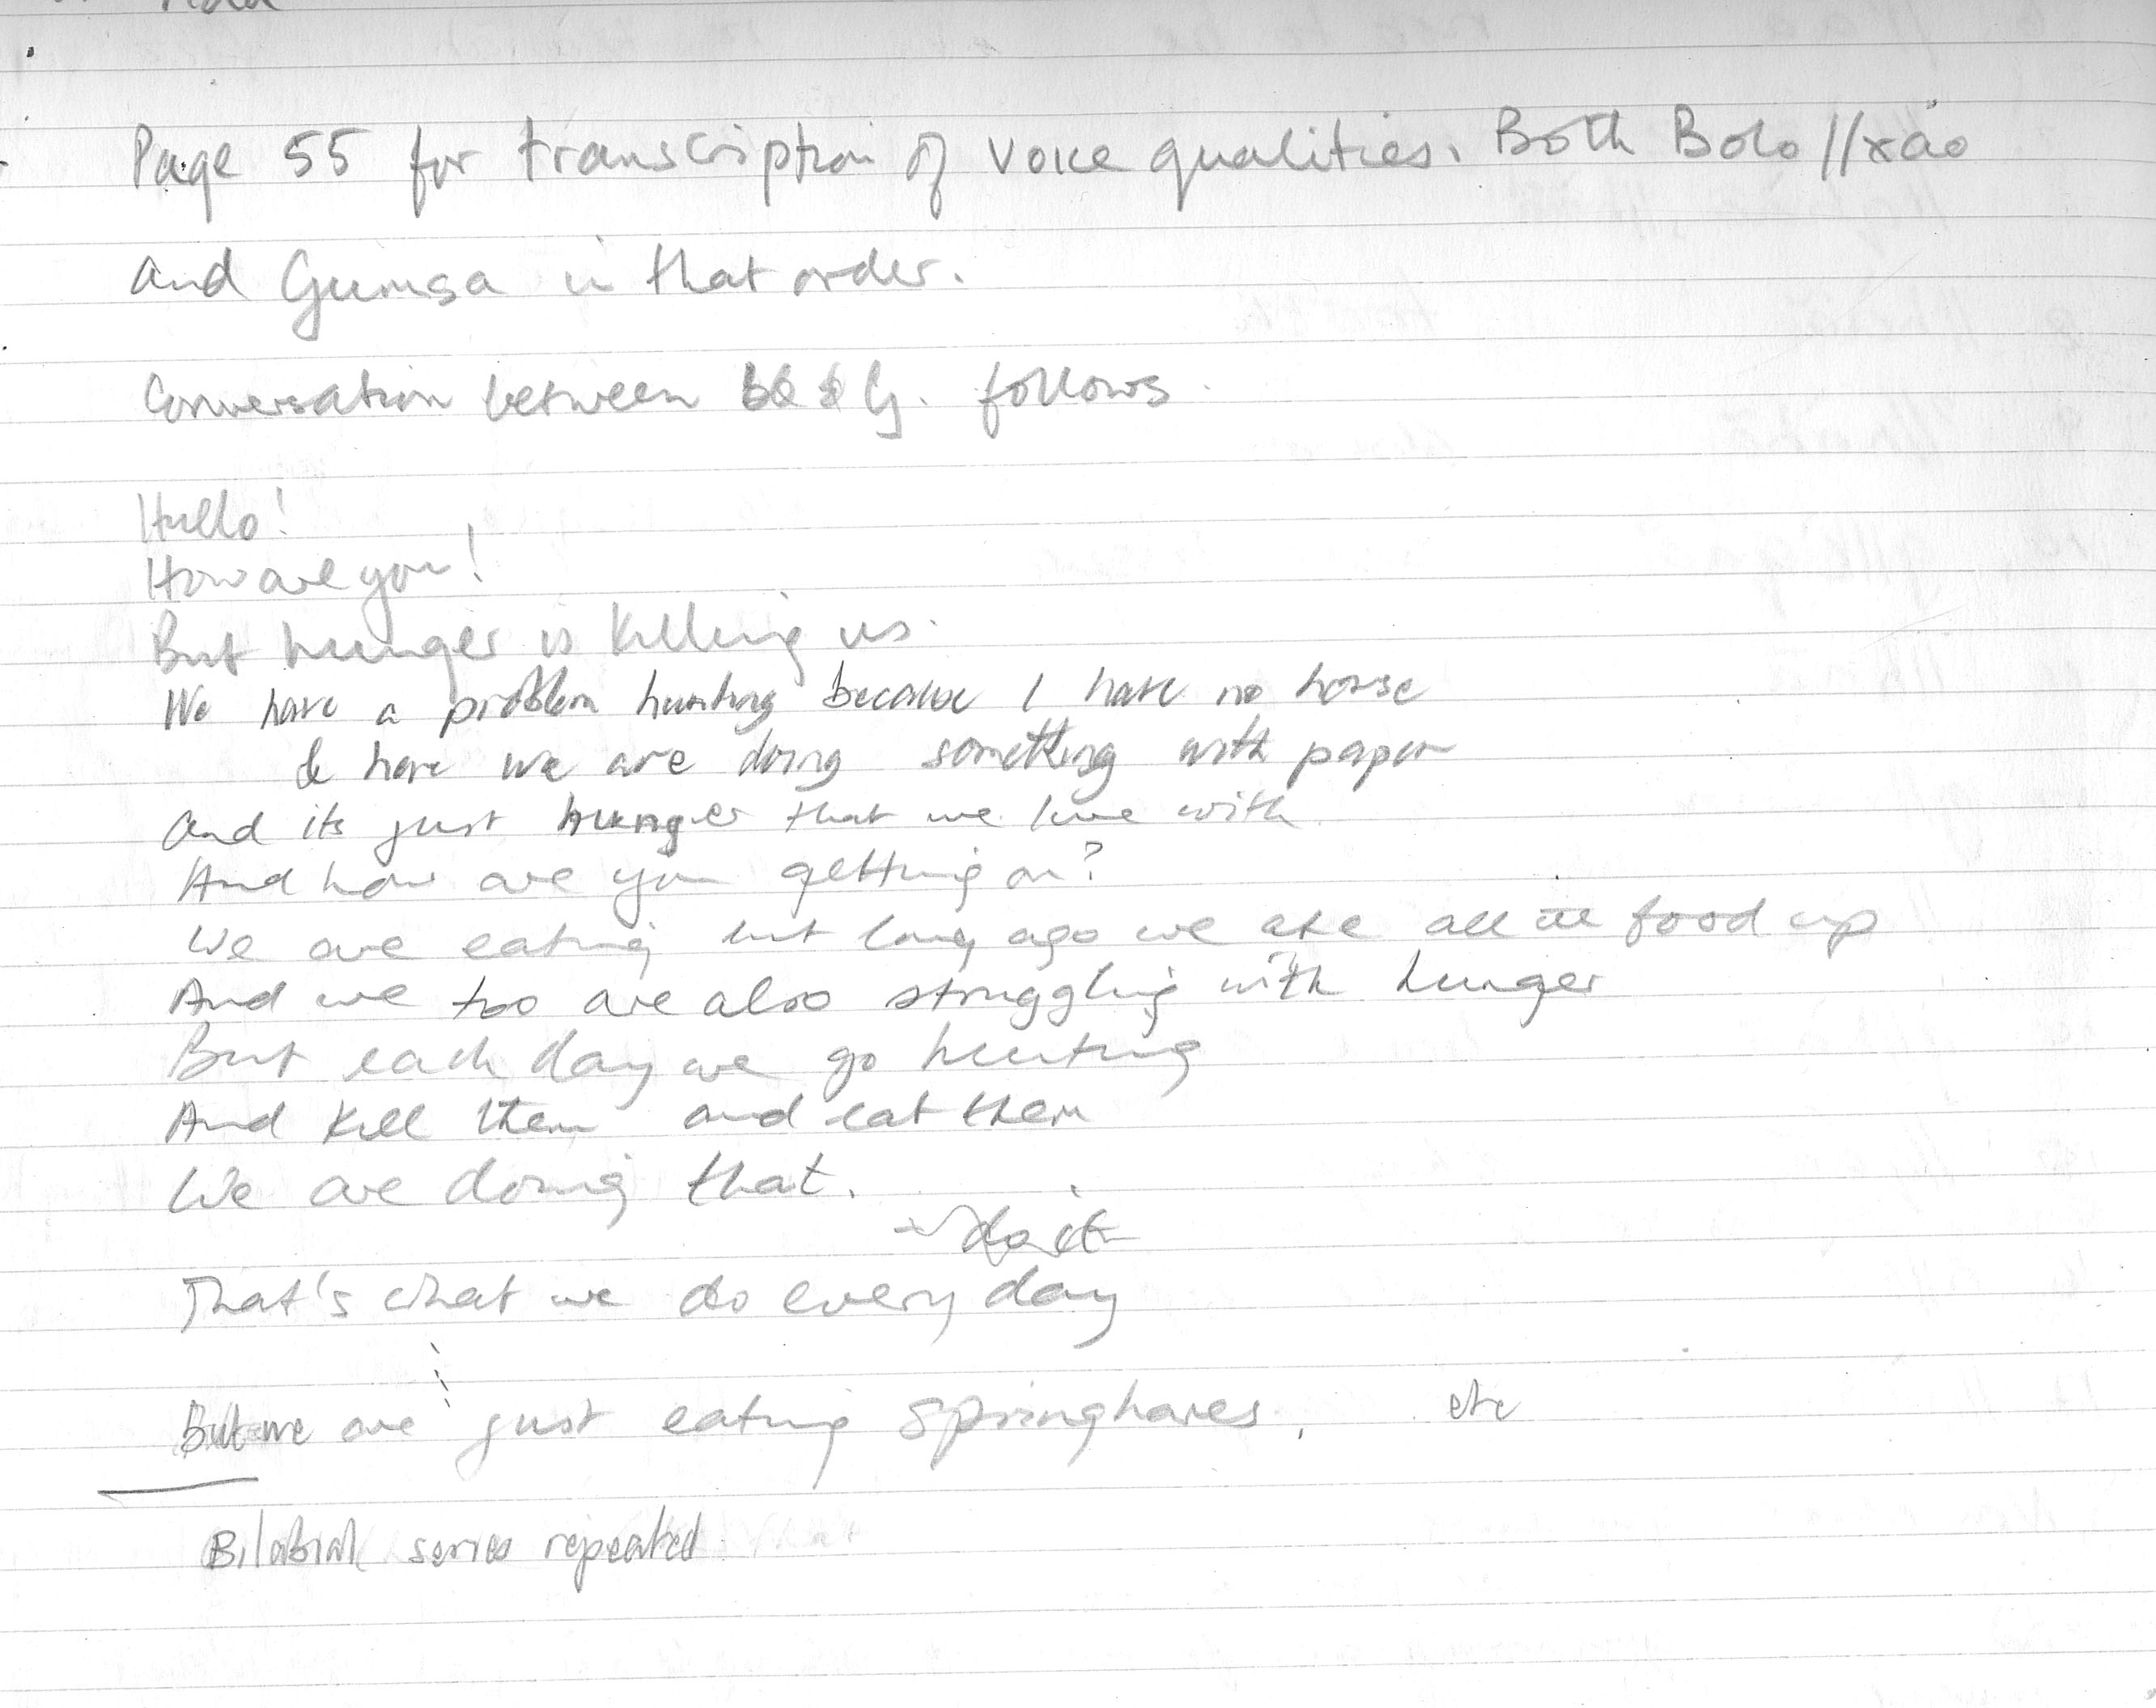 Page 55 for transcription of voice qualities. Both Bolo //xao
and Guimsa in that order.
Conversation between B & G. follows.
Hullo!
How are you!
But hunger is killing us.
We have a problem hunting because I have no horse
& here we are doing something with paper
And its just hunger that we live with
And how are you getting on?
We are eating but long ago we ate all the food up
And we too are also struggling with hunger
But each day we go hunting
And kill them and eat them
We are doing that.
do it
That's what we do every day
But we are just eating springhares, etc
Bilabial series repeated